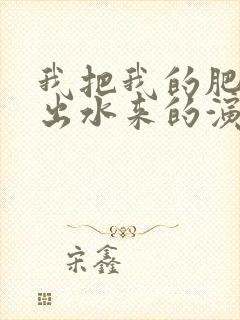 我把我的肥
出水来的演
宋鑫